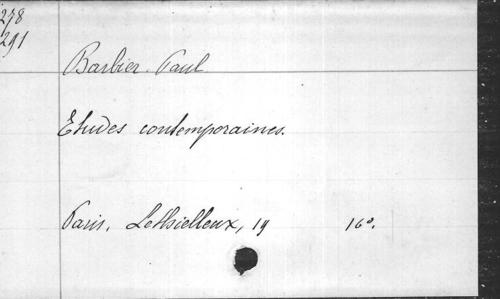 278
291
Barbier Paul
Etudes contemporaines.
Paris, Lethielleux, 19 16°.